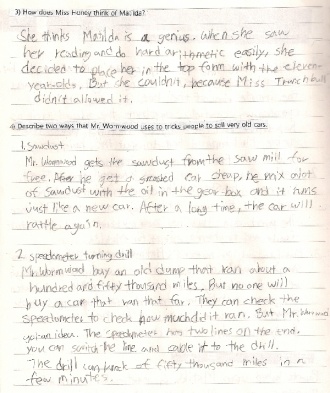 3) How does Miss Honey think of Matilda?
She thinks Matilda is a genius. when she saw
her reading and do hard arithmetic easily, she
decided to place her in the top form with the eleven-
year olds. But she couldn't, because Miss Trunchbull
didn't allowed it.
Describe two ways that Mr. Wormwood uses to tricks people to sell very old cars.
1. Sawdust
Mr. Wormwood gets the sawdust from the saw mill for
free. After he get a smashed car cheap, he mix a lot
of sawdust with the oil in the gear box and it runs
just like a new car. After a long time, the car will
rattle again.
2. speedometer turning drill
Mr. Wormwood buy an old dump that ran about a
hundred and fifty thousand miles. But no one will
buy a car that ran that far. They can check the
speedometer to check how much did it ran. But Mr. Wormwood
got an idea. The speedometer has two lines on the end.
you can switch the line and cable it to the drill.
The drill can of fifty thousand miles in a
few minutes.